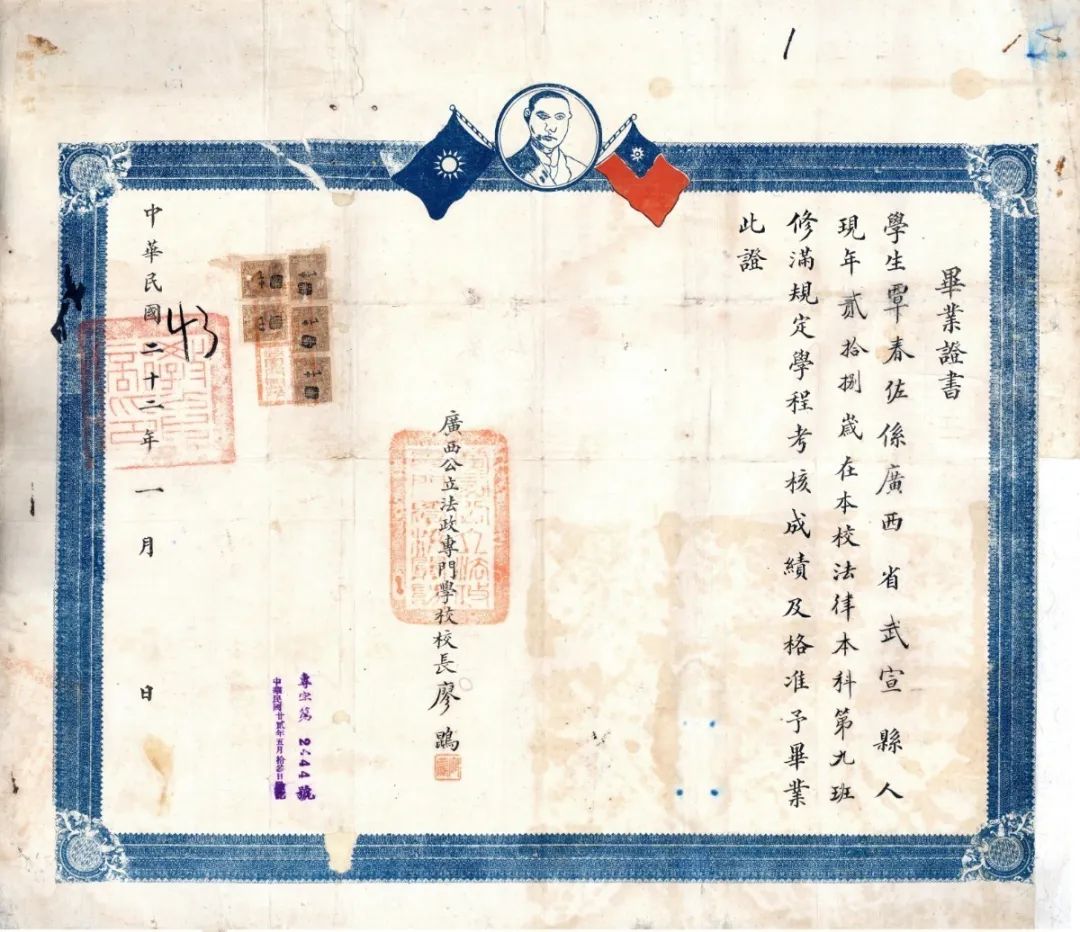 畢業證書
學生覃春佐係廣西省武宣縣人
現年貳拾捌歲在本校法律本科第九班
修滿規定學程考核成績及格准予畢業
此證
廣西公立法政專門學校校長廖鶚
專字第2644號
中華民國廿貳年五月拾
中華民國二十二年一月 日
43